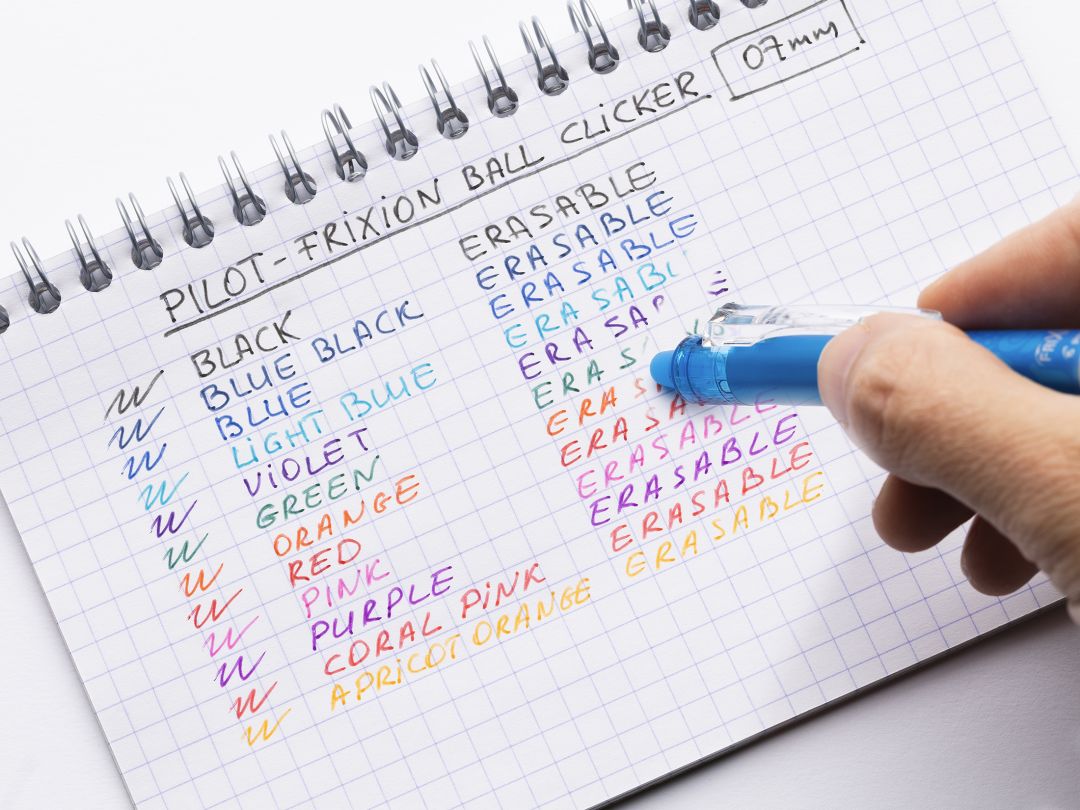 PILOT-FRIXION BALL CLICKER 07mm
BLACK ERASABLE
BLUE BLACK ERASABLE
BLUE ERASABLE
LIGHT BLUE ERASABL
VIOLET ERASA E
GREEN ERAS
ORANGE ERAS
RED ERASA
PINK ERASABLE
PURPLE ERASABLE
CORAL PINK ERASABLE
APRICOT ORANGE ERASABLE